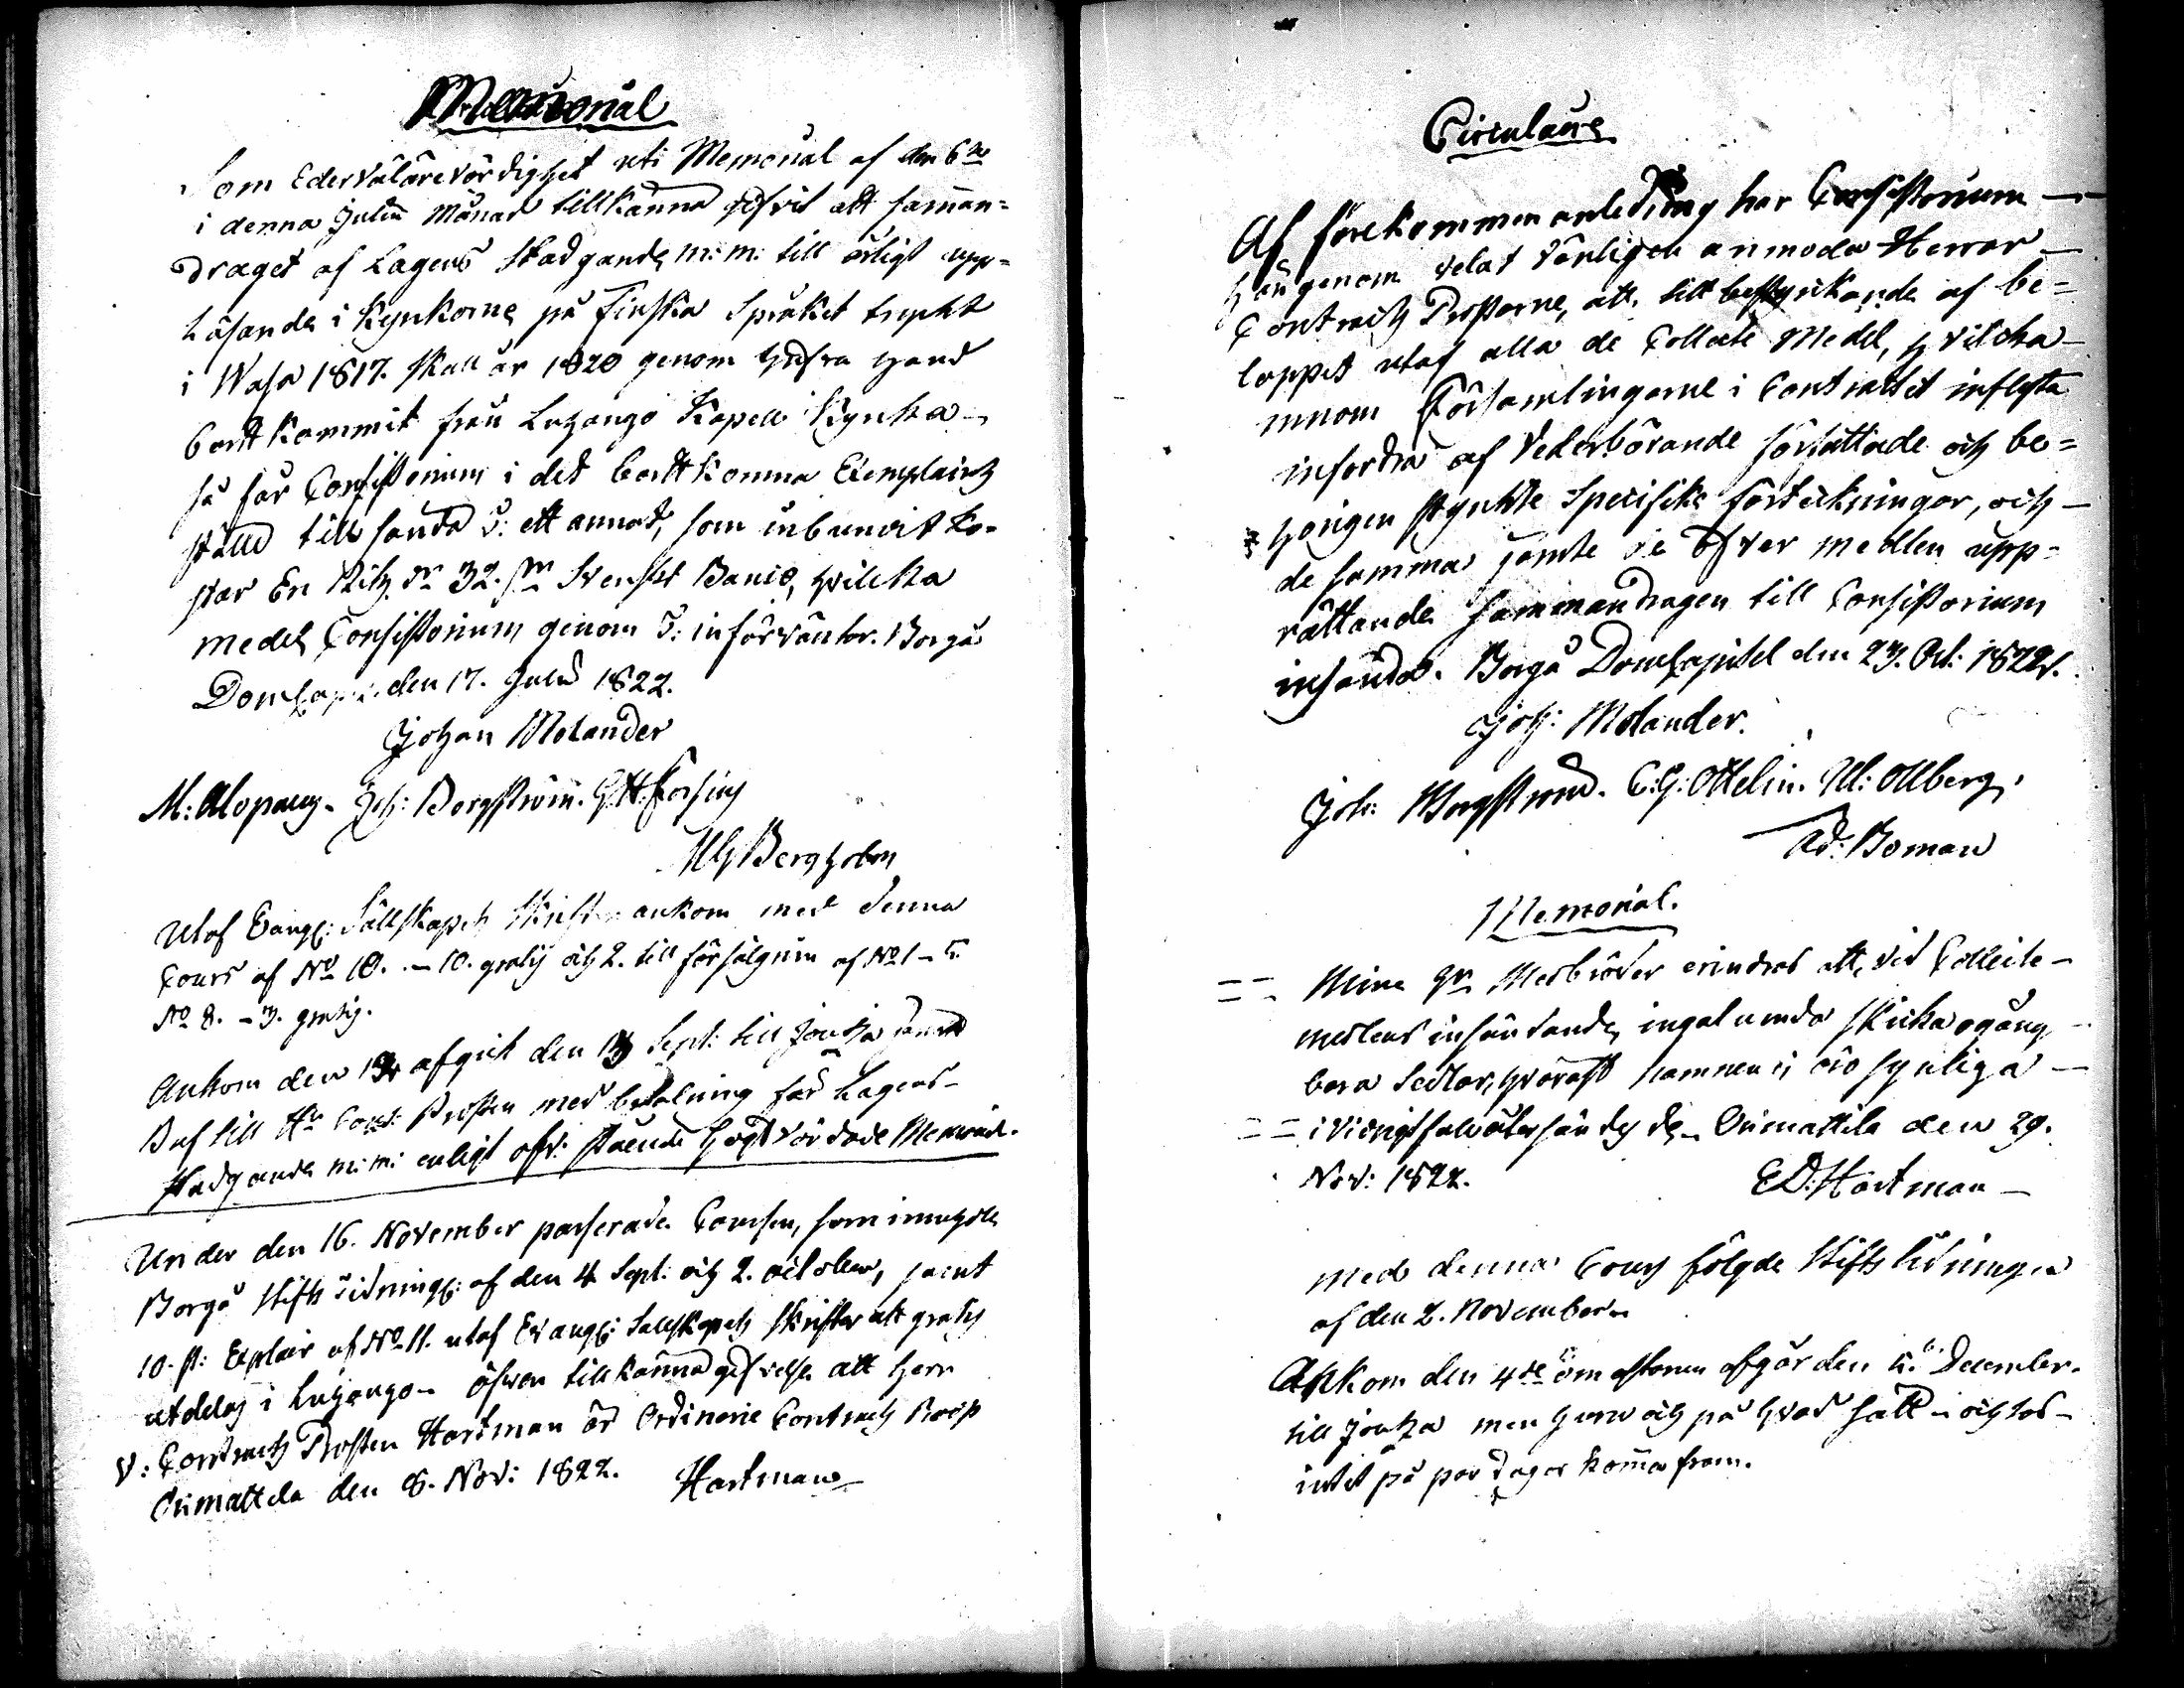 Memorial
Som Eder välärevördighet uti Memorial af den 6te
i denna Julii Månad tillkänna gifvit att samman=
draget af Lagens Stadgande m:m: till årligt upp=
läsande i Kyrkorne på Finska Språket tryckt
i Wasa 1817. skall år 1820 genom
bortkommit från Kapell Kyrka
så får Consistorium i det bortkomna Exemplairets
ställe tillsända E: ett annat, som inbundit ko=
star En Rb dr 32. Svenskt Banco, hvilcka
medel Consistorium genom E: införväntar. Borgå
Domkapit. den 17. Julii 1822.
Johan Molander
M: Alopaeus. Joh: Borgström. G H: Forsius
M G Bergholm
Utaf Evangl: Sällskapets Skrifter ankom med denna
Cours af No 10. – 10. gratis och 2. till försäljning af No 1 – 5.
No 8. – 3. gratis.
Ankom den afgick den 13 Sept: till
Bref till Hr Cont: Prosten med betalning för Lagens
Stadgande m:m: enligt ofv: stående Högtvördade Memorial.
Under den 16. November passerade Coursen, som innehöll
Borgå Stifts Tidningl: af den 4 Sept: och 2. october, samt
10. st: Explair af No 11. utaf Evangl: Sällskapets skrifter att gratis
utdelas i äfven tillkännagifvelse att herr
V: Contracts Prosten Hartman är Ordinarie Contracts Prost
Orimattila den 8. Nov: 1822. Hartman
Circulaire
Af förekommen anledning har Consistorium
härigenom velat vänligen anmoda Herrar
Contracts Prostarne, att, till bestyrkande af be=
loppet utaf alla de Collecte Medel, hvilcka
innom Församlingarne i Contractet inflyta
infordra af Vederbörande författade och be=
hörigen styrkte Specifike förteckningar, och
desamma jämte de öfver medlen upp=
rättande Sammandragen till Consistorium
insända. Borgå Domkapitel den 23. Oct: 1822.
Joh: Molander.
Joh: Borgström. C: G: Ottelin. M: Ollberg.
Ad: Boman
Memorial.
Mine Hr Medbröder erindras att, vid Collecte
medlens insändande, ingalunda skicka ogång
bara Sedlar, hvarest namnen ej äro synliga
i vidrigt fall återsändes de. Orimattila den 29.
Nov: 1822.
E D: Hartman
Med denna Cours följde Stifts tidningen
af den 2. November.
Ankom den 4de om aftonen afgår den 5. December.
till men huru och på hvad sätt
intet på par dagar komma fram.